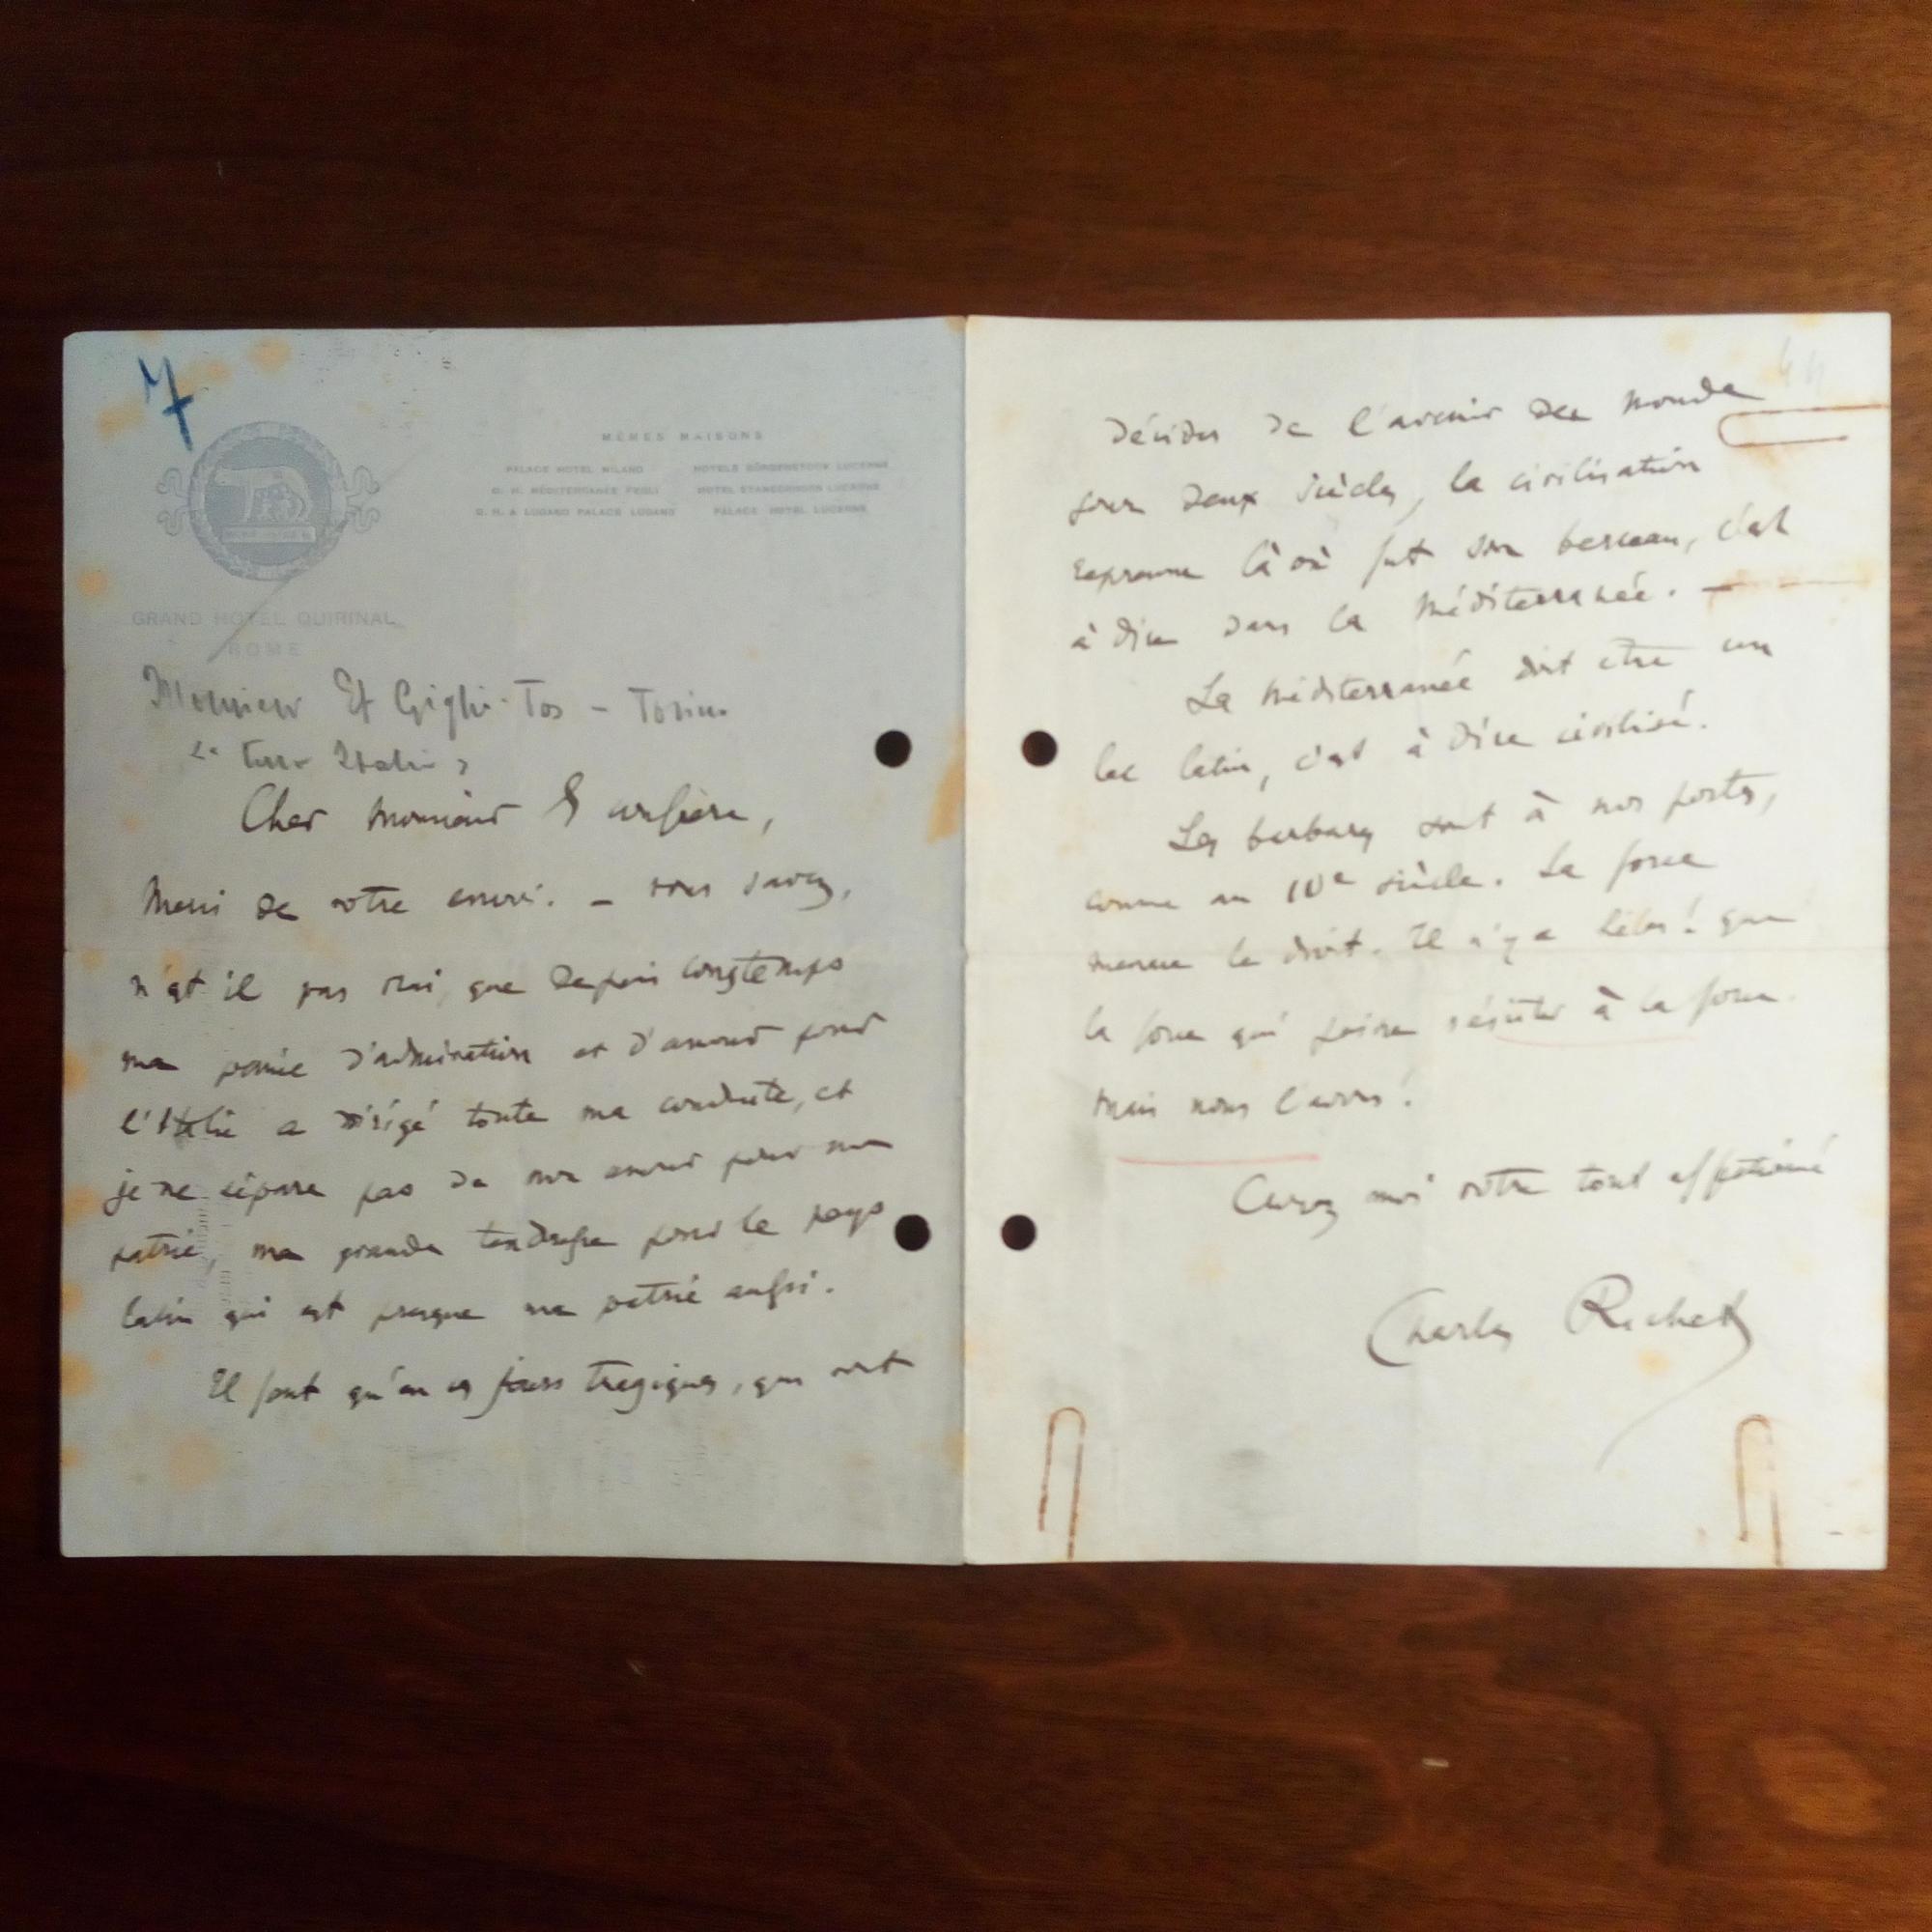 7
MÊMES MAISONS
PALACE HOTEL MILANO
HOTELS BÜRGENSTOCK LUCERNE
G. H. MÉDITERRANÉE PEGLI
HOTEL STANSERHORN LUCERNE
G. H. & LUGANO PALACE LUGANO
PALACE HOTEL LUCERNE
GRAND HOTEL QUIRINAL
ROME
Monsieur Ef Giglio-Tos - Torino
Cher monsieur & confrère,
Merci de votre envoi. - vous savez,
n'est il pas vrai, que depuis longtemps
ma pensée d'admiration et d'amour pour
l'Italie a dirigé toute ma conduite, et
je ne sépare pas de mon amour pour ma
patrie, ma grande tendresse pour le pays
latin qui est presque ma patrie aussi.
Il faut qu'en ces jours tragiques, qui vont
décider de l'avenir du monde
pour deux siècles, la civilisation
reprenne là où fut son berceau, c'est
à dire dans la Méditerranée. -
La Méditerranée doit être un
lac latin, c'est à dire civilisé.
Les barbares sont à nos portes,
comme au siècle. La force
menace le droit. Il n'y a hélas! que
la force qui puisse résister à la force.
Mais nous l'avons!
Croyez moi votre tout affectionné
Charles Richet